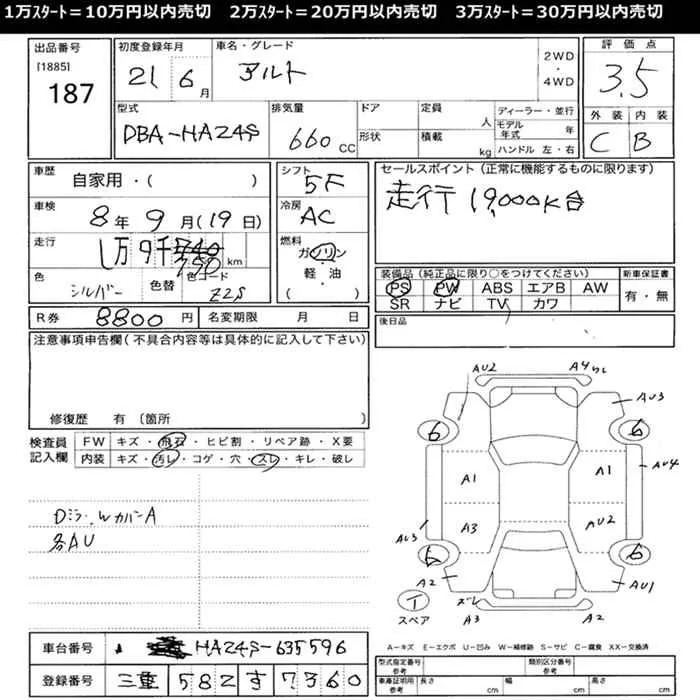 1万ｽﾀｰﾄ＝10万円以内売切　2万ｽﾀｰﾄ＝20万円以内売切　3万ｽﾀｰﾄ＝30万円以内売切
出品番号
[1885]
187
初度登録年月
21 6月
車名・グレード
アルト
2WD
・
4WD
評価点
3.5
外装 内装
C B
型式
DBA-HA24S
排気量
660 CC
ドア
形状
定員 人
積載 kg
ディーラー・並行
モデル年式 年
ハンドル 左・右
車歴
自家用・( )
車検
8年9月(19日)
走行
1万9千 km
色
シルバー
色替
色コード
Z2S
シフト
5F
冷房
AC
燃料
ガソリン
軽・油
( ・ )
セールスポイント(正常に機能するものに限ります)
走行19,000K台
装備品(純正品に限り○をつけてください)
PS PW ABS エアB AW
SR ナビ TV カワ
新車保証書
有・無
後日品
R券 8800円
名変期限 月 日
注意事項申告欄(不具合内容等は具体的に記入して下さい)
修復歴 有〔箇所 〕
検査員記入欄
FW キズ・飛石・ヒビ割・リペア跡・X要
内装 キズ・汚レ・コゲ・穴・スレ・キレ・破レ
Dミラー、WカバーA
各AU
AU2 A4
AU3
6 6
A1 A1
AU4
A3 AU2
AU3
6 6
A2 AU1
スペア
A3 A2
A－キズ E－エクボ U－凹み W－補修跡 S－サビ C－腐食 XX－交換済
車台番号
HA24S-635596
登録番号
三重 582 す 7360
型式指定番号 参考
類別区分番号 参考
車庫証明用 参考
長さ cm 幅 cm 高さ cm